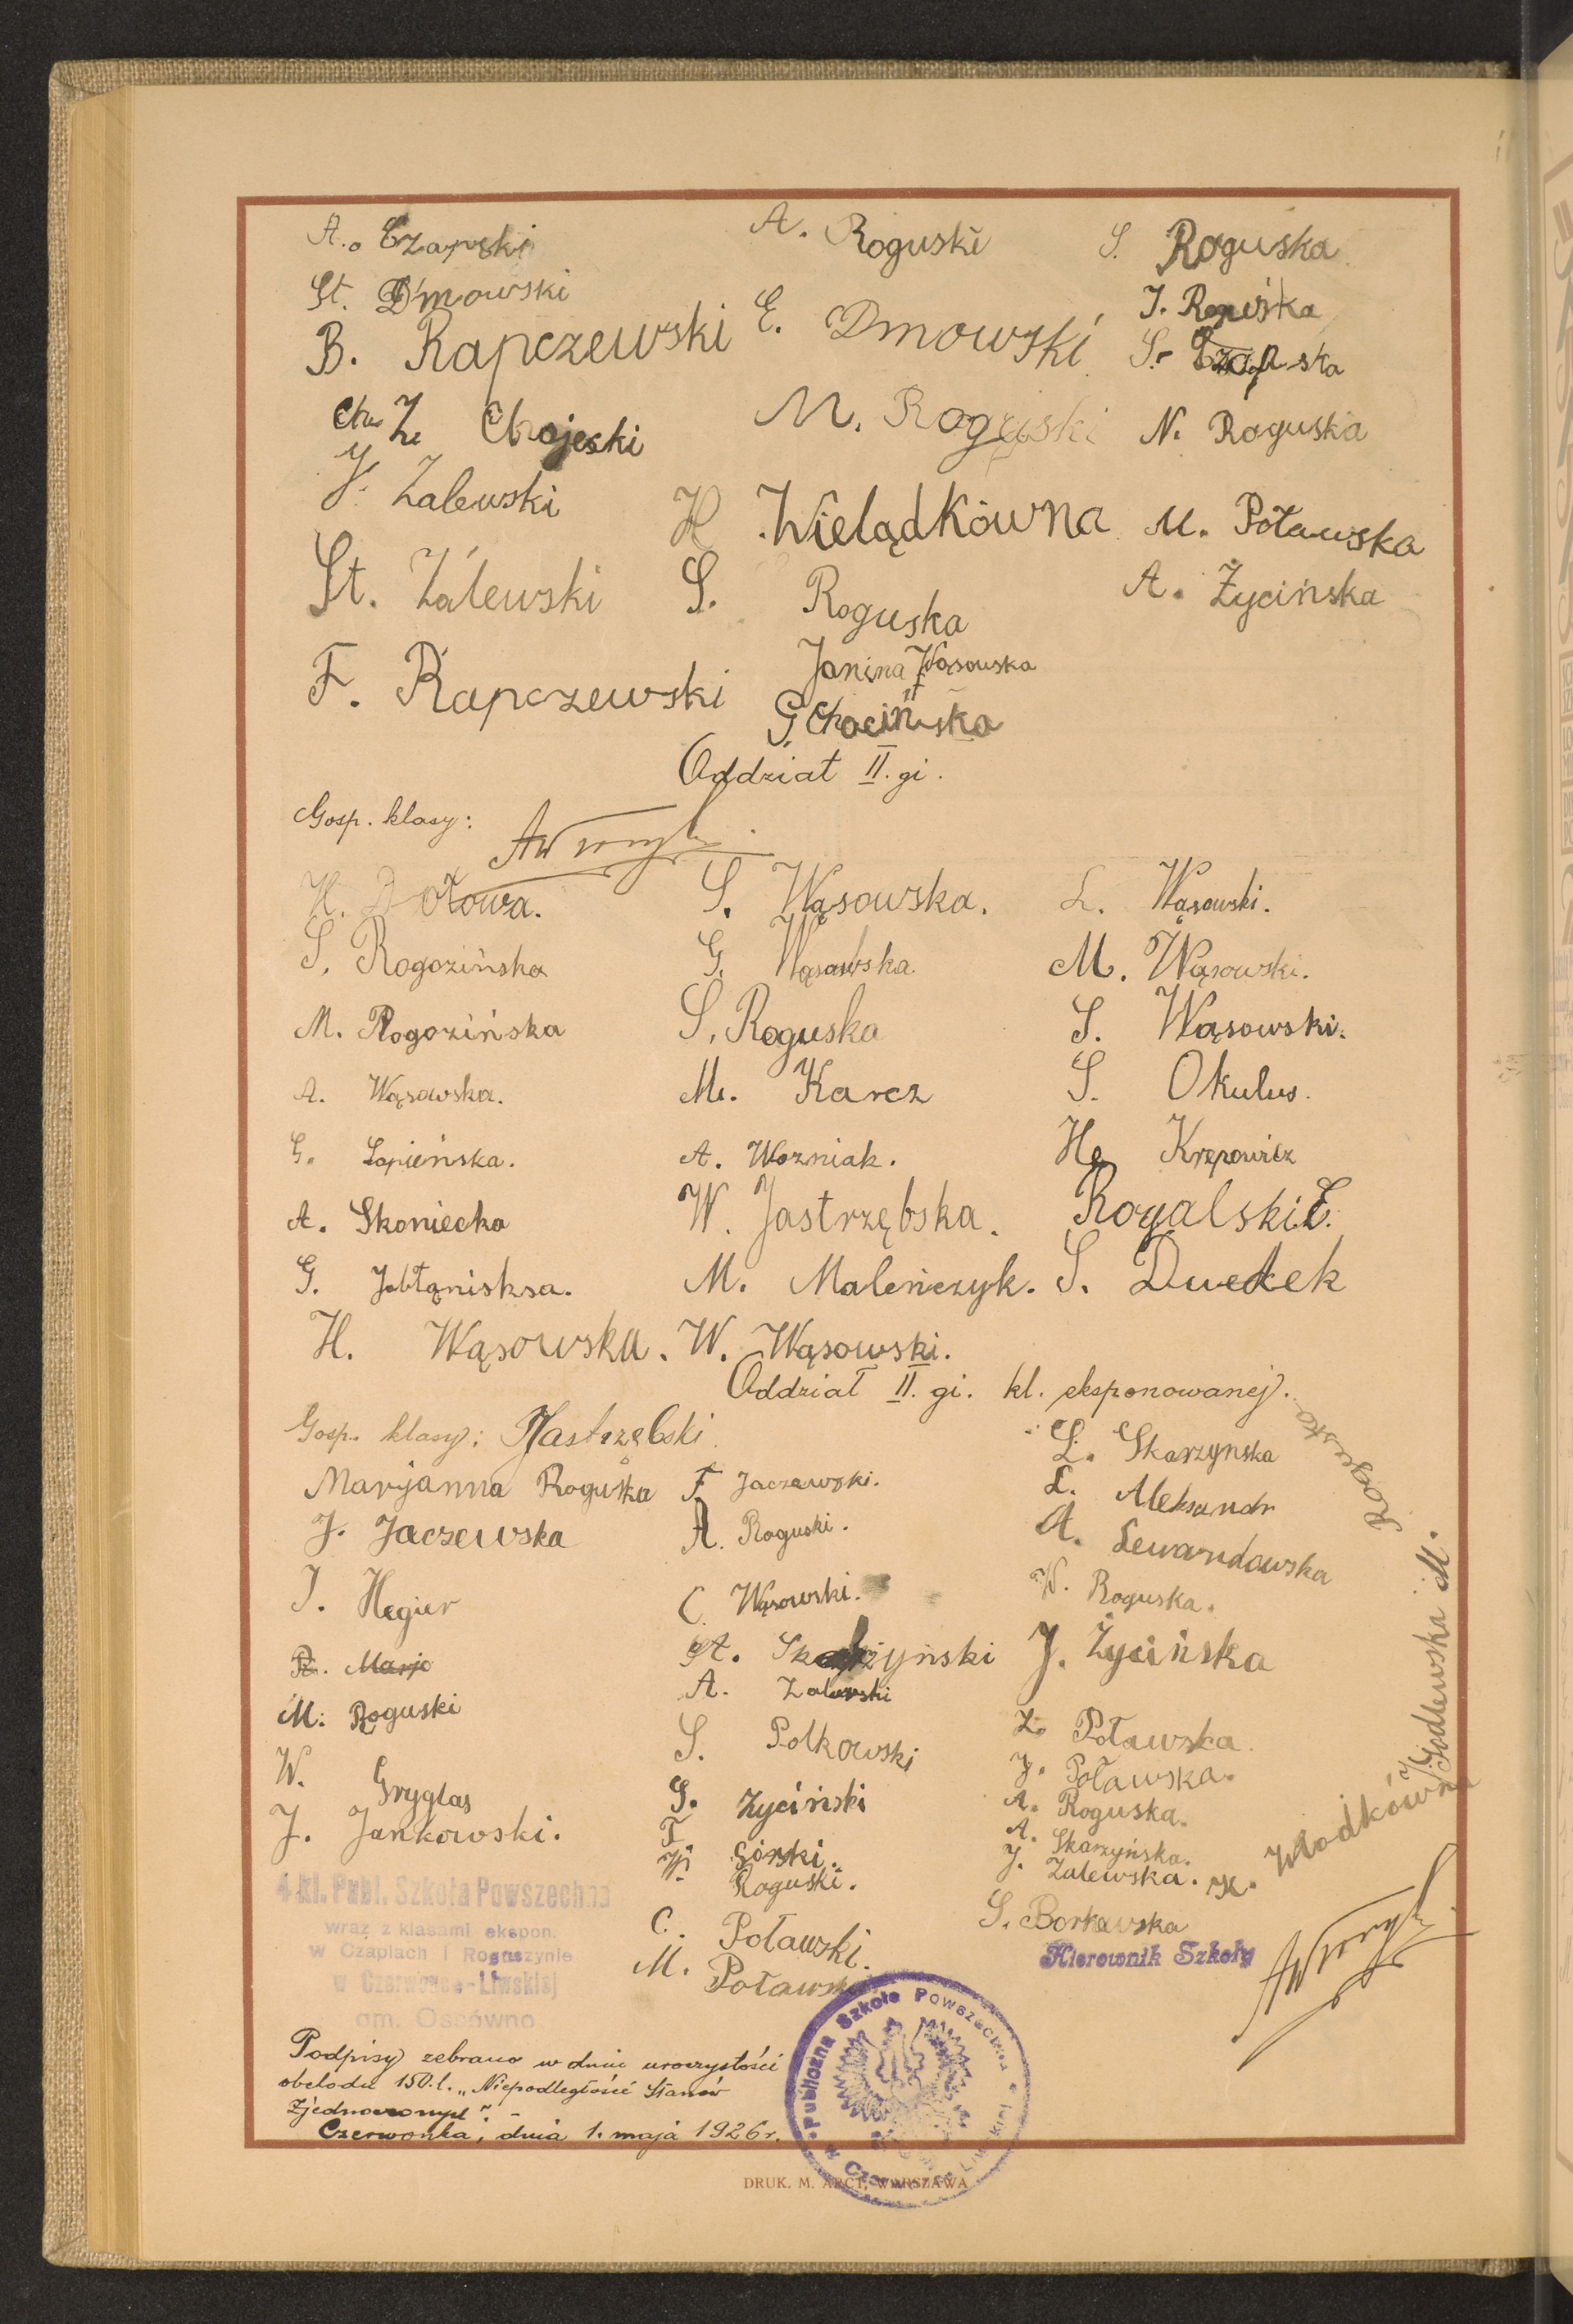 A. Czapski
St. Dmowski
B. Rapczewski
Ch. Z. Chojecki
J. Zalewski
St. Zalewski
F. Rapczewski
A. Roguski
E. Dmowski
M. Roguski
H. Wielądkówna
S. Roguska
Janina Wąsowska
G. Chacińska
S. Roguska
J. Roguska
S. Czapska
N. Roguska
M. Poławska
A. Życińska
Oddział II. gi.
Gosp. klasy:
H. Dołowa.
S. Rogozińska
M. Rogozińska
A. Wąsowska.
G. Łapieńska.
A. Skoniecka
G. Jabłąnisksa.
H. Wąsowska.
S. Wąsowska.
G. Wąsowska
S. Roguska
M. Karcz
A. Wozniak.
W. Jastrzębska.
M. Maleńczyk.
W. Wąsowski.
L. Wąsowski.
M. Wąsowski.
S. Wąsowski.
S. Okulus.
He Krzpowicz
Rogalski E.
S. Duedek
Oddział II. gi. kl. eksponowanej.
Gosp. klasy: Jastrzębski
Marjanna Roguska
J. Jaczewska
J. Hegier
R. Marjo
M. Roguski
W. Gryglas
J. Jankowski.
F. Jaczewski.
A. Roguski.
C. Wąsowski.
St. Skarżyński
A. Zalewski
S. Polkowski
S. Życiński
T. Górski.
W. Roguski.
C. Poławski.
M. Poławski
Ł. Skarzynska
L. Aleksandr
A. Lewandowska
W. Roguska.
J. Życińska
Z. Poławska.
J. Poławska.
A. Roguska.
A. Skarzyńska.
J. Zalewska.
S. Borkowska
Roguska
Jodlewska M.
K. Włodkówna
4 kl. Publ. Szkoła Powszechna
wraz z klasami ekspon.
w Czaplach i Roguszynie
w Czerwonce-Liwskiej
gm. Ossówno
Kierownik Szkoły
Podpisy zebrano w dniu uroczystości
obchodu 150.l. „Niepodległości Stanów
Zjednoczonych". -
Czerwonka, dnia 1. maja 1926 r.
Publiczna Szkoła Powszechna w Czerwonce Liwskiej
DRUK. M. ARCT, WARSZAWA